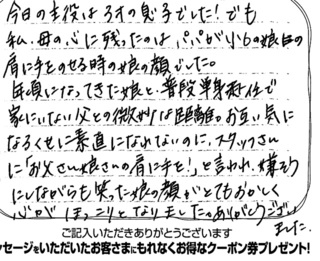 今日の主役は3才の息子でした!でも
私、母の心に残ったのは、パパが小6の娘の
肩に手をのせる時の娘の顔でした。
年頃になってきた娘と、普段単身赴任で
家にいない父との微妙な距離。お互い気に
なるくせに素直になれないのに、スタッフさん
に「お父さん娘さんの肩に手を!」と言われ、嫌そう
にしながらも笑った娘の顔がとてもおかしく
心がほっこりとなりました。ありがとうござい
ました。
ご記入いただきありがとうございます
ッセージをいただいたお客さまにもれなくお得なクーポン券プレゼント!